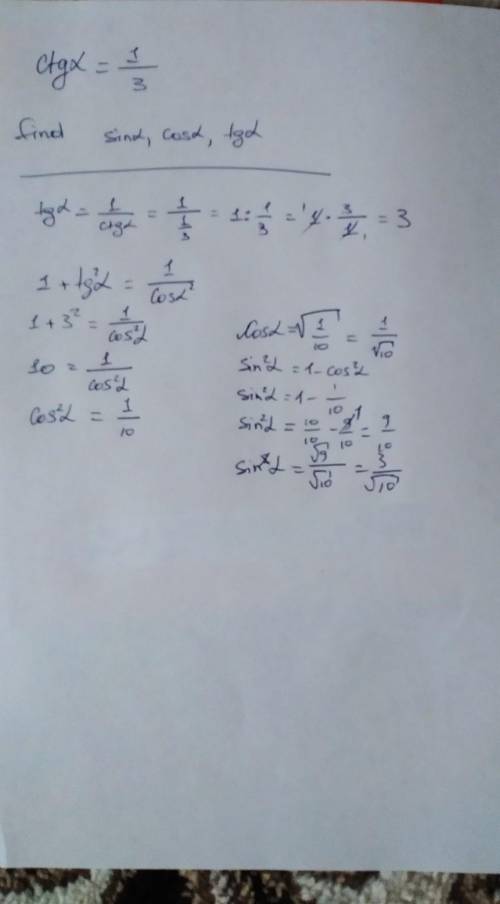 ctgα = 1/3
find sinα, cosα, tgα
tgα = 1/ctgα = 1/(1/3) = 1 : 1/3 = 1 · 3/1 = 3
1 + tg²α = 1/cosα²
1 + 3² = 1/cos²α
10 = 1/cos²α
cos²α = 1/10
cosα = √(1/10) = 1/√10
sin²α = 1 - cos²α
sin²α = 1 - 1/10
sin²α = 10/10 - 1/10 = 9/10
sinα = √9/√10 = 3/√10